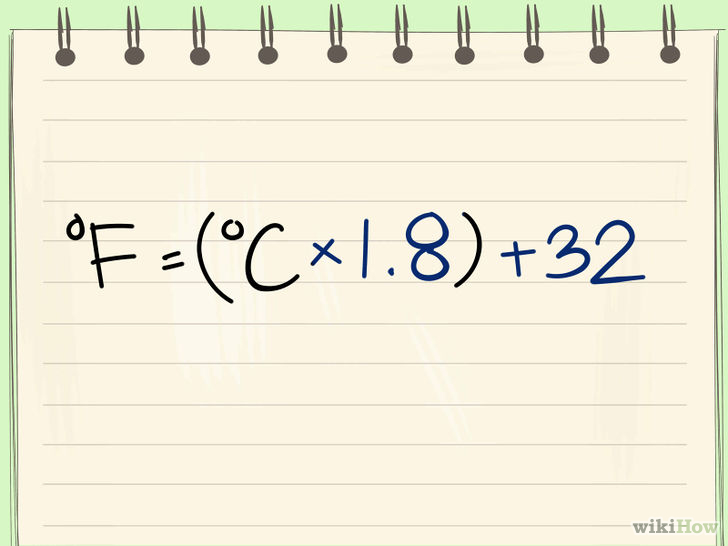 °F = (°C × 1.8) + 32
wikiHow